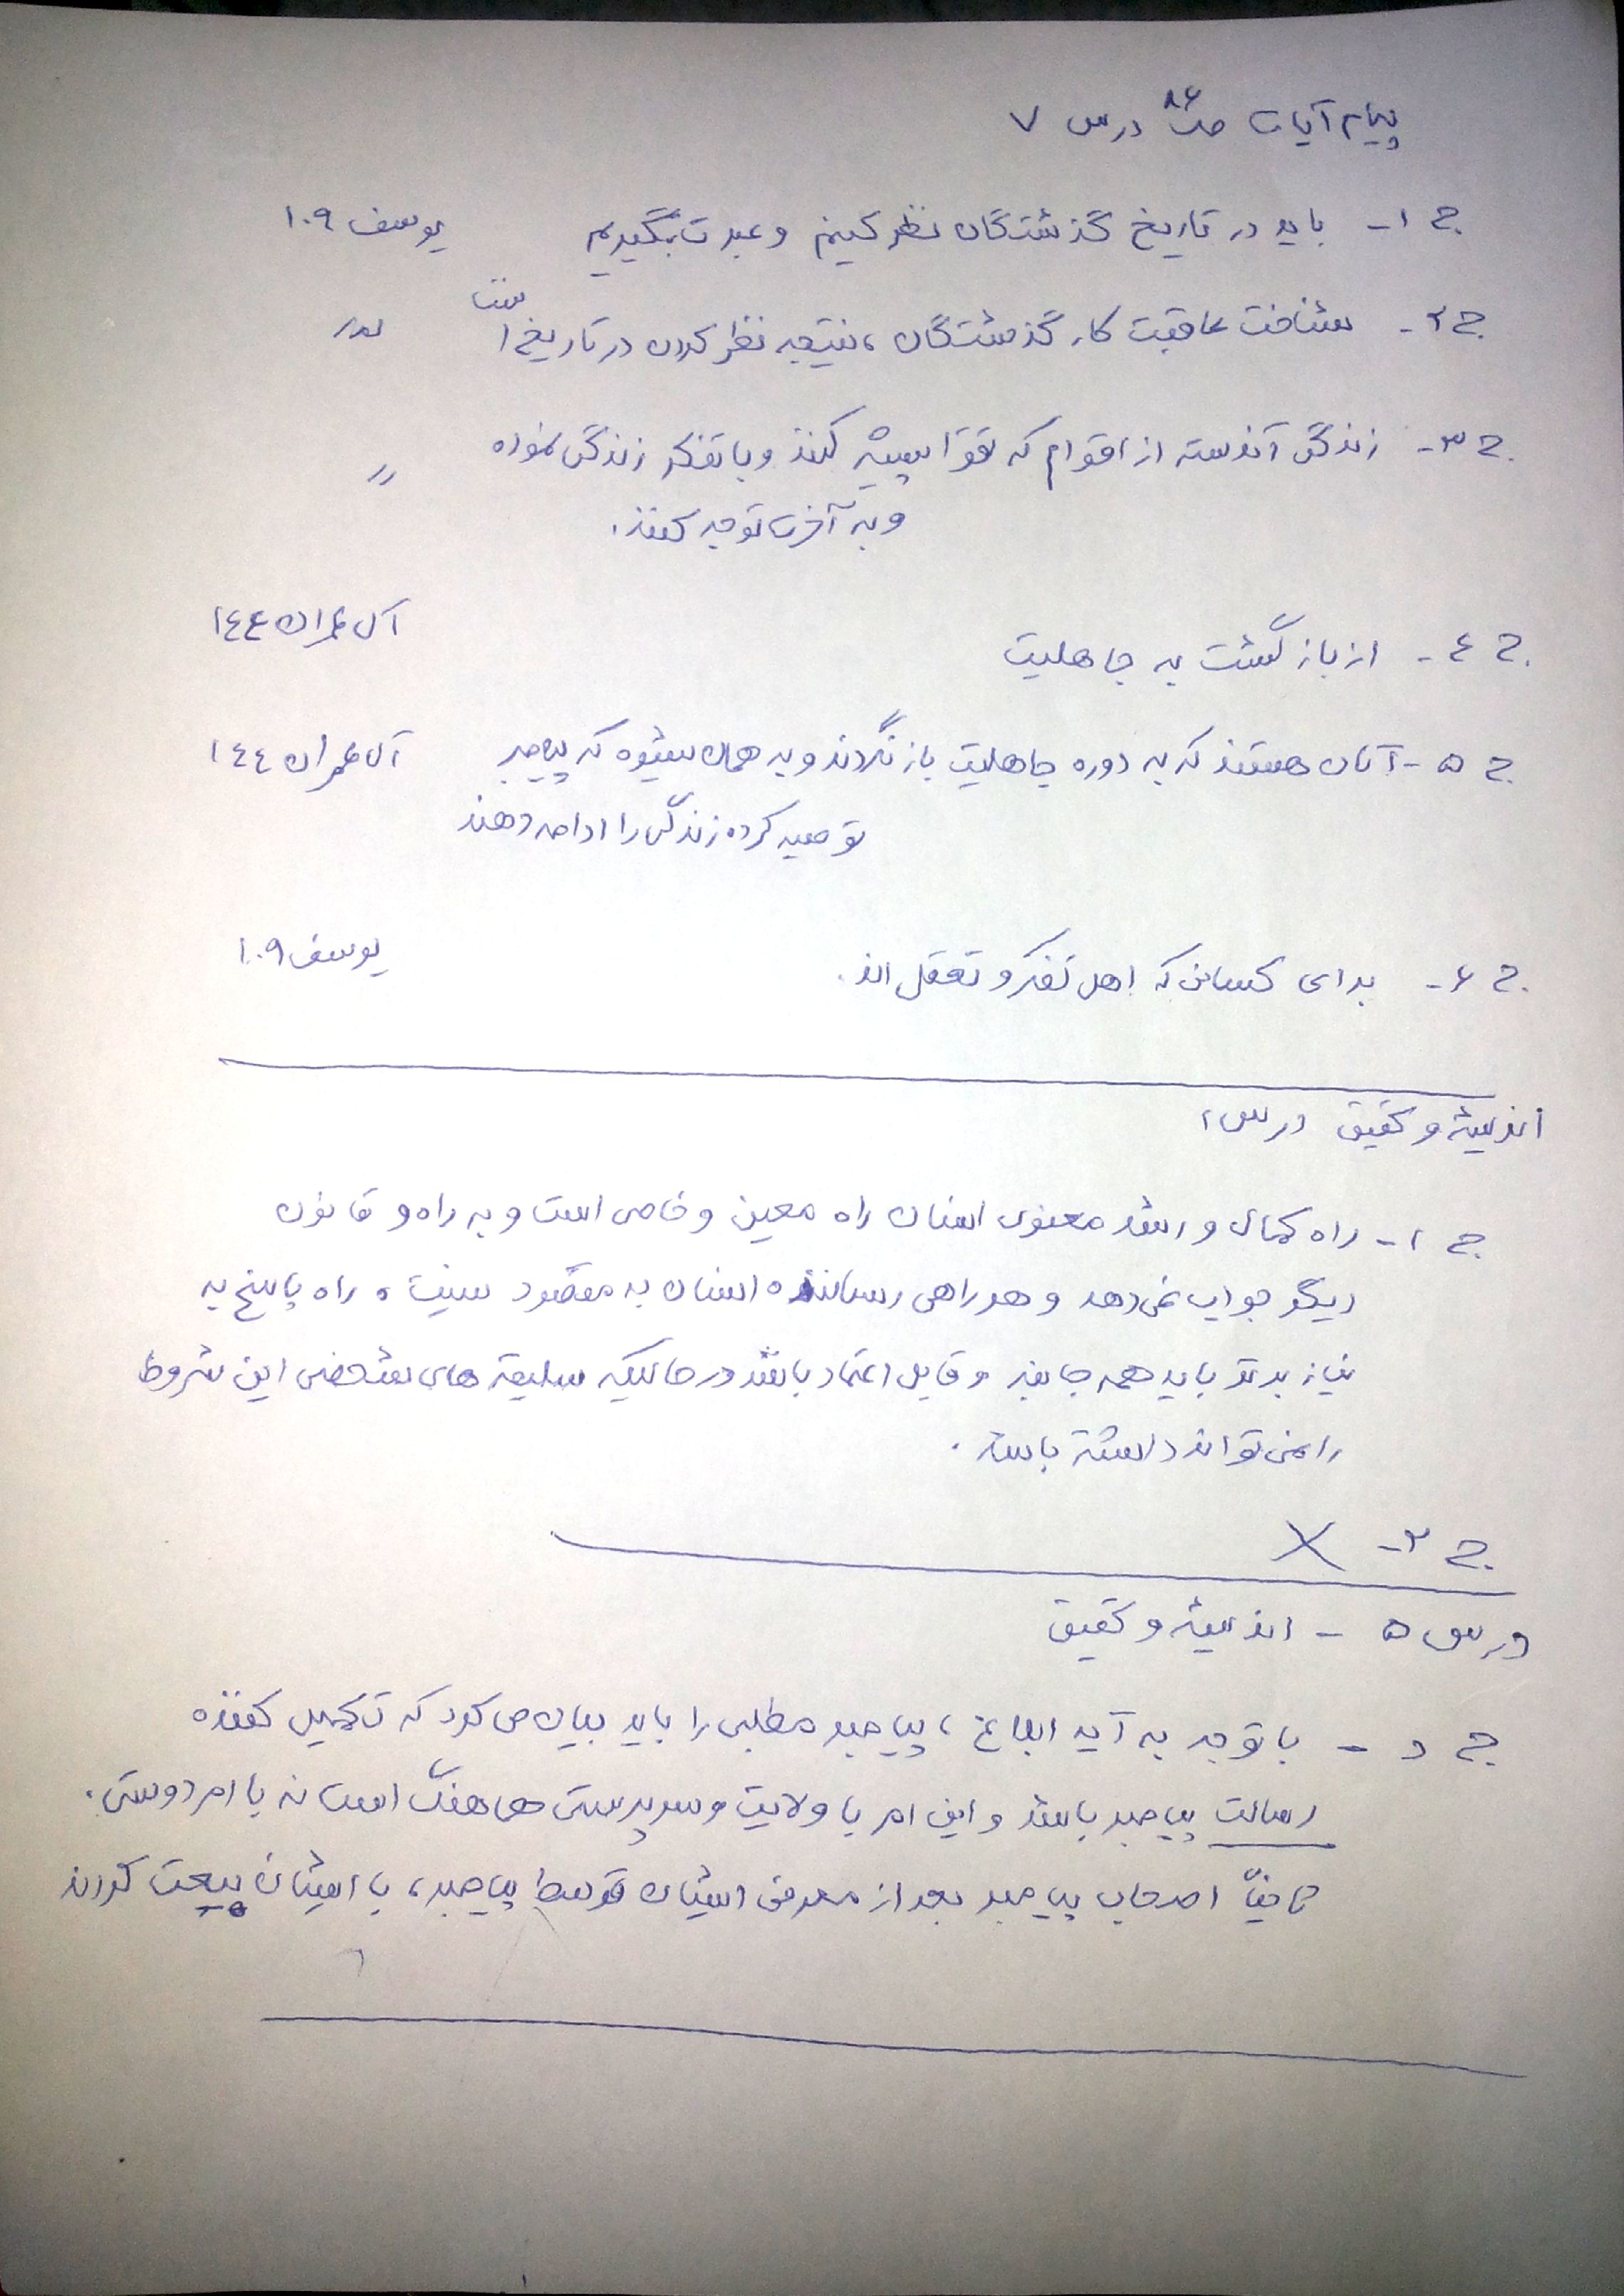 پیام آیات ص ۸۶ درس ۷
ج ۱- باید در تاریخ گذشتگان نظر کنیم و عبرت بگیریم یوسف ۱۰۹
ج ۲- شناخت عاقبت کار گذشتگان، نتیجه نظر کردن در تاریخ است
ج ۳- زندگی آندسته از اقوام که تقوا پیشه کنند و با تفکر زندگی نموده //
و به آخرت توجه کنند.
ج ٤- از بازگشت به جاهلیت آل عمران ١٤٤
ج ۵- آنان هستند که به دوره جاهلیت بازنگردند و به همان شیوه که پیامبر آل عمران ١٤٤
توصیه کرده زندگی را ادامه دهند
ج ۶- برای کسانی که اهل تفکر و تعقل اند. یوسف ۱۰۹
اندیشه و تحقیق درس ۱
ج ۱- راه کمال و رشد معنوی انسان راه معین و خاصی است و به راه و قانون
دیگر جواب نمی‌دهد و هر راهی رساننده انسان به مقصود نیست، راه پاسخ به
نیاز برتر باید همه جانبه و قابل اعتماد باشد در حالیکه سلیقه های شخصی این شروط
را نمی تواند داشته باشد.
ج ۲- X
درس ۵ - اندیشه و تحقیق
ج د - با توجه به آیه ابلاغ، پیامبر مطلبی را باید بیان می کرد که تکمیل کننده
رسالت پیامبر باشد و این امر با ولایت و سرپرستی هماهنگ است نه با امر دوستی.
ثانیاً اصحاب پیامبر بعد از معرفی ایشان توسط پیامبر، با ایشان بیعت کردند